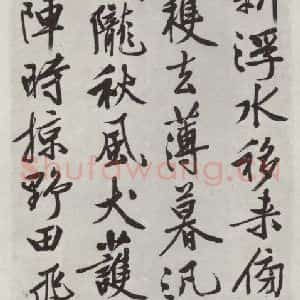 新浮水移来傍
穫去薄暮汎
隴秋風犬護
陣時掠野田飛
Shufawang.cn